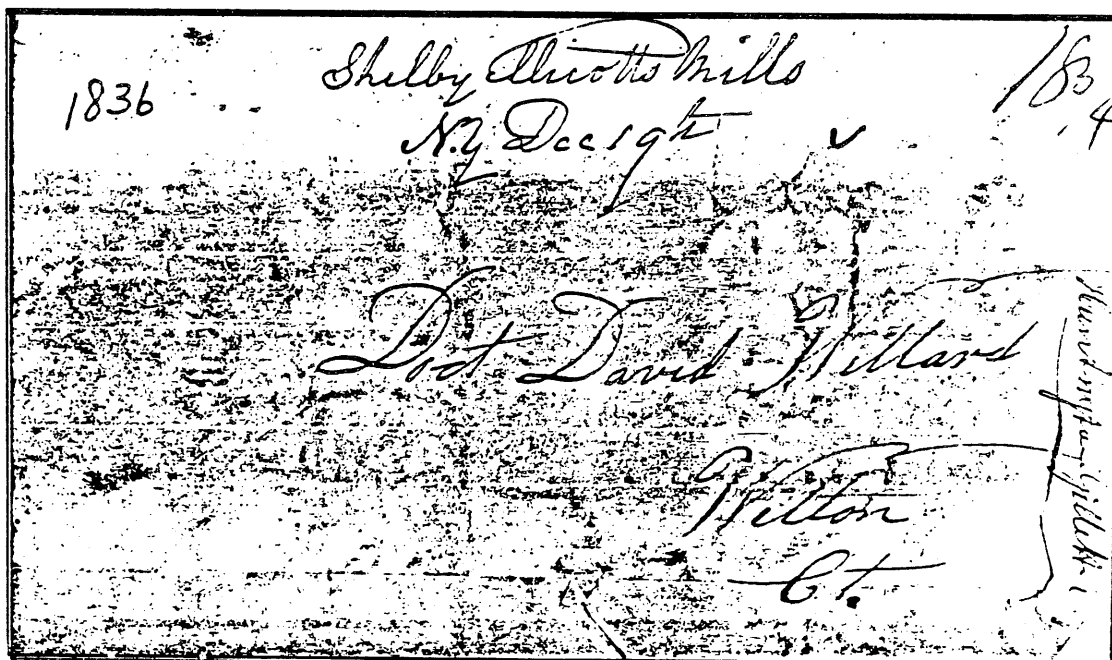 1836
Shelby Ellicotts Mills
18 3/4
N.Y Dec 19th
Doct David Willard
Wilton
Ct.